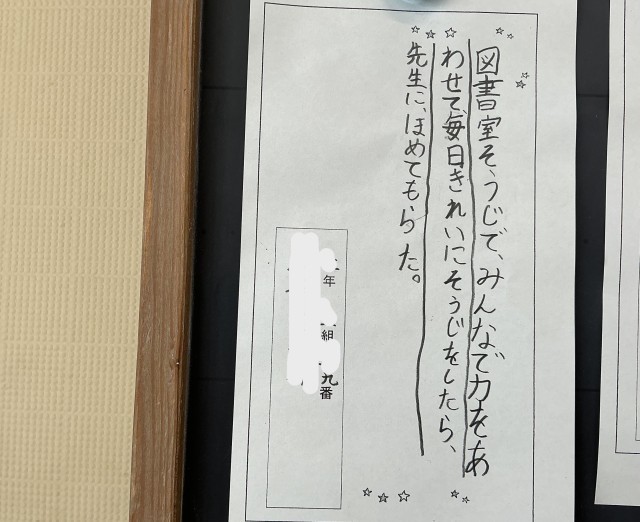 図書室そうじで、みんなで力をあ
わせて、毎日きれいにそうじをしたら、
先生に、ほめてもらった。
年
組
九番